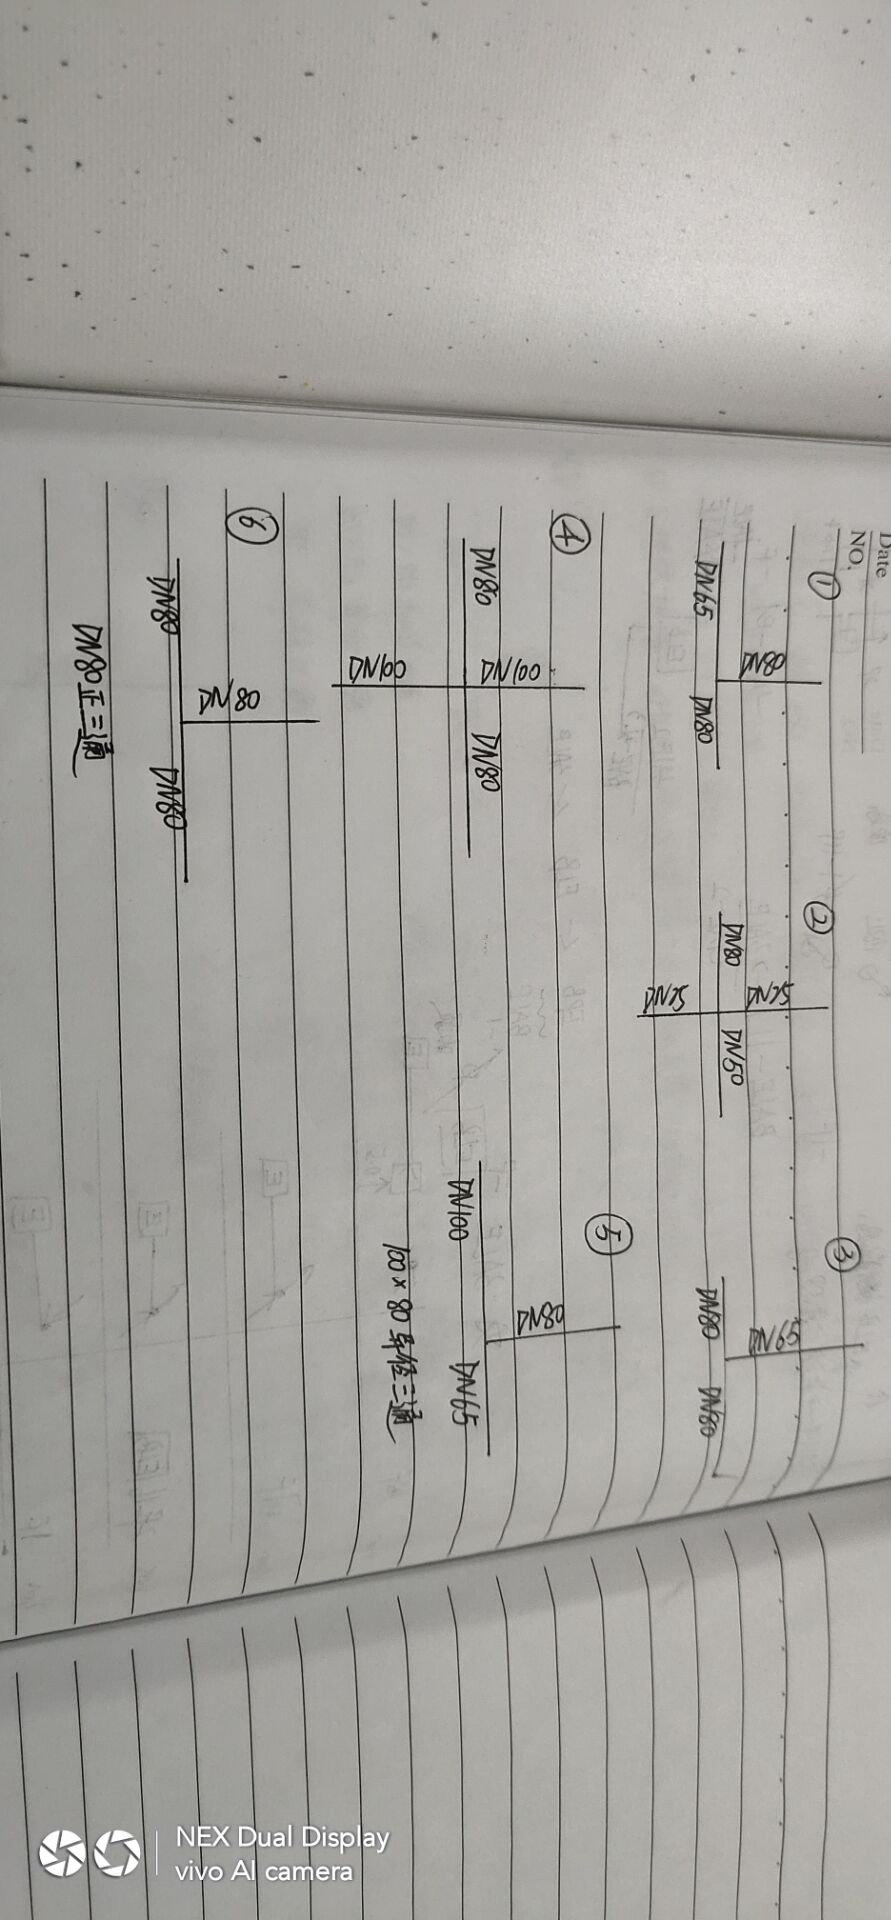 Date
NO.
①
DN80
DN65 DN80
②
DN80 DN25
DN25 DN50
③
DN65
DN80 DN80
④
DN80 DN100
DN100 DN80
⑤
DN80
DN100 DN65
100×80异径三通
⑥
DN80
DN80 DN80
DN80正三通
NEX Dual Display
vivo AI camera